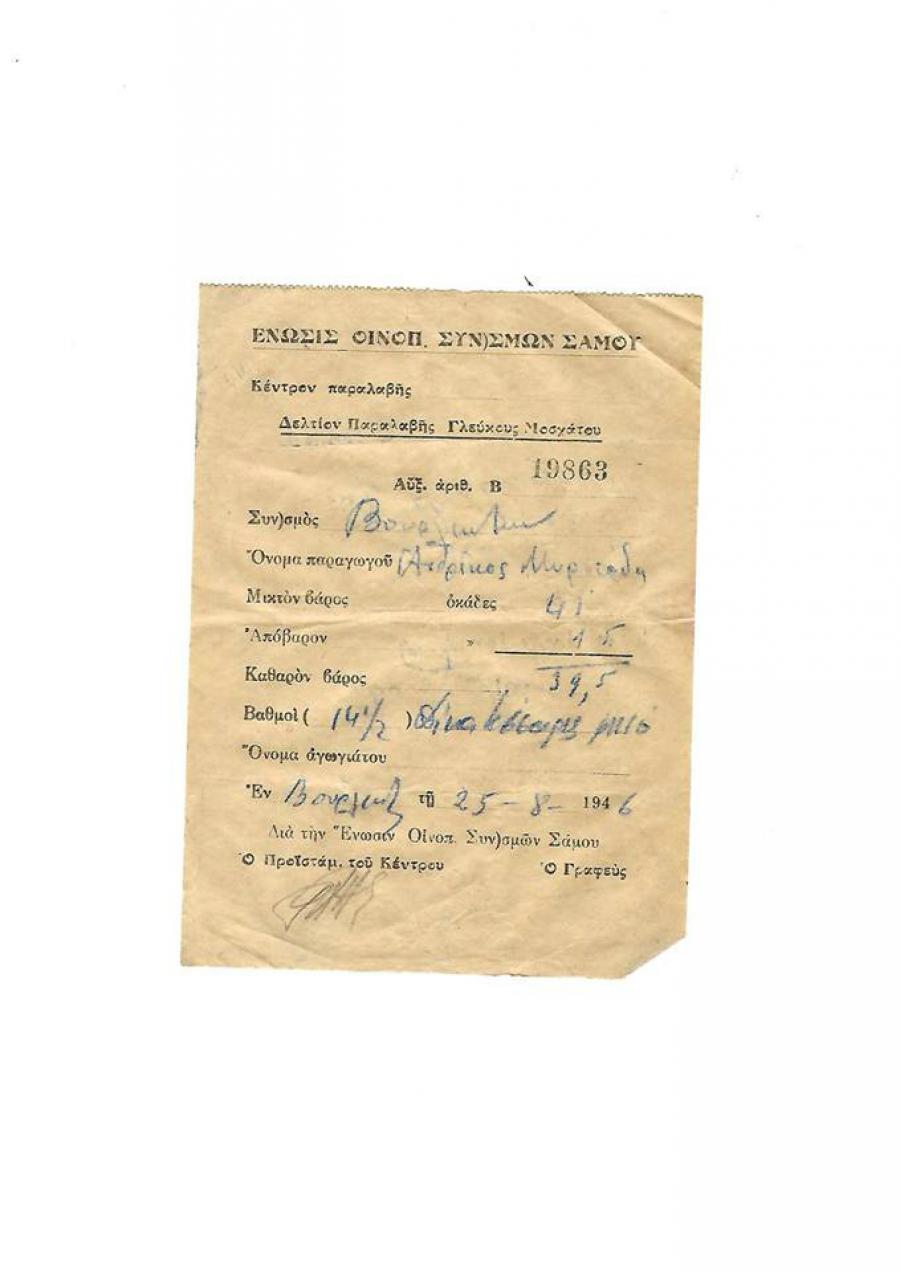 ΕΝΩΣΙΣ ΟΙΝΟΠ. ΣΥΝ)ΣΜΩΝ ΣΑΜΟΥ
Κέντρον παραλαβῆς
Δελτίον Παραλαβῆς Γλεύκους Μοσχάτου
Αὔξ. ἀριθ. Β 19863
Συν)σμὸς
Ὄνομα παραγωγοῦ
Μικτὸν βάρος ὀκάδες 41
Ἀπόβαρον » 1 5
Καθαρὸν βάρος 39,5
Βαθμοὶ ( 14 1/2 ) δέκα τέσσαρες
Ὄνομα ἀγωγιάτου
Ἐν τῇ 25-8-1946
Διὰ τὴν Ἕνωσιν Οἰνοπ. Συν)σμῶν Σάμου
Ὁ Προϊστάμ. τοῦ Κέντρου Ὁ Γραφεὺς